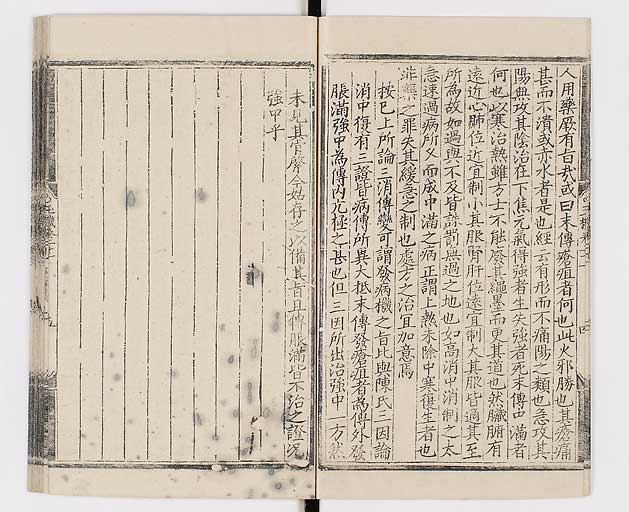 人用藥厥有旨哉或曰末傳瘡疽者何也此火邪勝也其瘡痛
甚而不潰或赤水者是也經云有形而不痛陽之類也急攻其
陽無攻其陰治在下焦元氣得強者生失強者死末傳中滿者
何也以寒治熱雖方士不能廢其繩墨而更其道也然臟腑有
遠近心肺位近宜制小其服腎肝位遠宜制大其服皆適其至
所為故如過與不及皆誅罰無過之地也如高消中消制之太
急速過病所久而成中滿之病正謂上熱未除中寒復生者也
非藥之罪失其緩急之制也處方之治宜加意焉
按已上所論三消傳變可謂發病機之旨比與陳氏三因論
消中復有三證皆病傳所異大抵末傳發瘡疽者為傳外發
脹滿強中為傳內亢極之甚也但三因所出治強中一方然
未見其旨廢今始存之以備其旨且傳脹滿皆不治之證況
強中乎